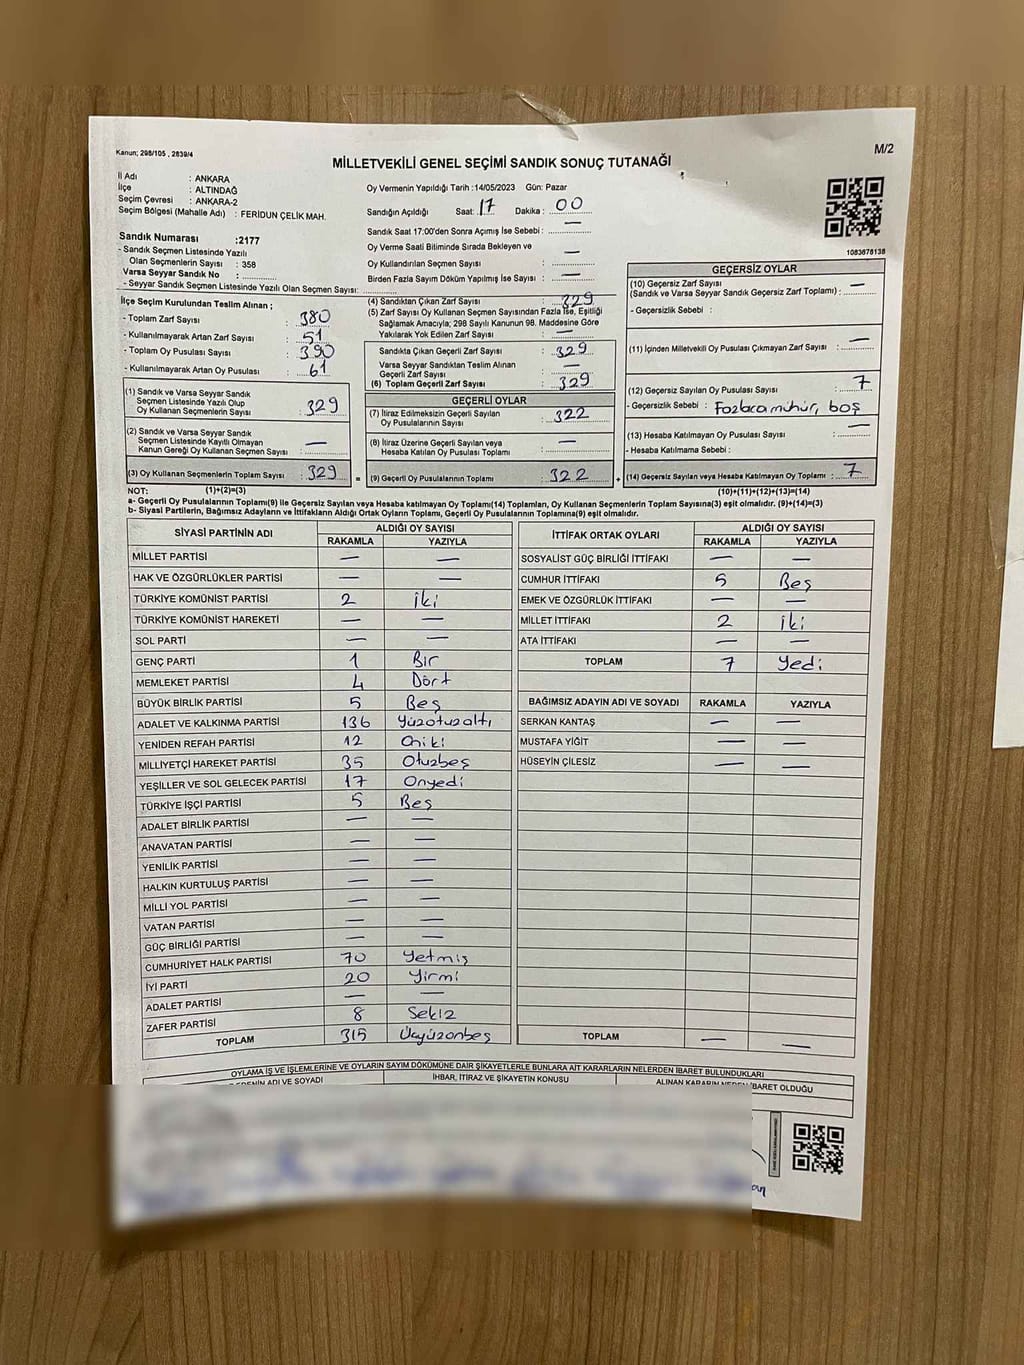 Kanun; 298/105 , 2839/4
MİLLETVEKİLİ GENEL SEÇİMİ SANDIK SONUÇ TUTANAĞI
M/2
İl Adı : ANKARA
İlçe : ALTINDAĞ
Seçim Çevresi : ANKARA-2
Seçim Bölgesi (Mahalle Adı) : FERİDUN ÇELİK MAH.
Sandık Numarası :2177
- Sandık Seçmen Listesinde Yazılı
Olan Seçmenlerin Sayısı : 358
Varsa Seyyar Sandık No :
- Seyyar Sandık Seçmen Listesinde Yazılı Olan Seçmen Sayısı:
Oy Vermenin Yapıldığı Tarih :14/05/2023 Gün: Pazar
Sandığın Açıldığı Saat: 17 Dakika : 00
Sandık Saat 17:00'den Sonra Açımış İse Sebebi : —
Oy Verme Saati Bitiminde Sırada Bekleyen ve
Oy Kullandırılan Seçmen Sayısı : —
Birden Fazla Sayım Döküm Yapılmış İse Sayısı : —
1083678138
İlçe Seçim Kurulundan Teslim Alınan ;
- Toplam Zarf Sayısı : 380
- Kullanılmayarak Artan Zarf Sayısı : 51
- Toplam Oy Pusulası Sayısı : 390
- Kullanılmayarak Artan Oy Pusulası : 61
(1) Sandık ve Varsa Seyyar Sandık
Seçmen Listesinde Yazılı Olup
Oy Kullanan Seçmenlerin Sayısı : 329
(2) Sandık ve Varsa Seyyar Sandık
Seçmen Listesinde Kayıtlı Olmayan
Kanun Gereği Oy Kullanan Seçmen Sayısı : —
(3) Oy Kullanan Seçmenlerin Toplam Sayısı : 329
(1)+(2)=(3)
(4) Sandıktan Çıkan Zarf Sayısı : 329
(5) Zarf Sayısı Oy Kullanan Seçmen Sayısından Fazla İse, Eşitliği
Sağlamak Amacıyla; 298 Sayılı Kanunun 98. Maddesine Göre
Yakılarak Yok Edilen Zarf Sayısı : —
Sandıkta Çıkan Geçerli Zarf Sayısı : 329
Varsa Seyyar Sandıktan Teslim Alınan
Geçerli Zarf Sayısı : —
(6) Toplam Geçerli Zarf Sayısı : 329
GEÇERLİ OYLAR
(7) İtiraz Edilmeksizin Geçerli Sayılan
Oy Pusulalarının Sayısı : 322
(8) İtiraz Üzerine Geçerli Sayılan veya
Hesaba Katılan Oy Pusulası Toplamı : —
= (9) Geçerli Oy Pusulalarının Toplamı : 322
GEÇERSİZ OYLAR
(10) Geçersiz Zarf Sayısı
(Sandık ve Varsa Seyyar Sandık Geçersiz Zarf Toplamı) : —
- Geçersizlik Sebebi :
(11) İçinden Milletvekili Oy Pusulası Çıkmayan Zarf Sayısı : —
(12) Geçersiz Sayılan Oy Pusulası Sayısı : 7
- Geçersizlik Sebebi : Fazlaca mühür, boş
(13) Hesaba Katılmayan Oy Pusulası Sayısı : —
- Hesaba Katılmama Sebebi :
+ (14) Geçersiz Sayılan veya Hesaba Katılmayan Oy Toplamı : 7
(10)+(11)+(12)+(13)=(14)
NOT:
a- Geçerli Oy Pusulalarının Toplamı(9) ile Geçersiz Sayılan veya Hesaba katılmayan Oy Toplamı(14) Toplamları, Oy Kullanan Seçmenlerin Toplam Sayısına(3) eşit olmalıdır. (9)+(14)=(3)
b- Siyasi Partilerin, Bağımsız Adayların ve İttifakların Aldığı Ortak Oyların Toplamı, Geçerli Oy Pusulalarının Toplamına(9) eşit olmalıdır.
SİYASİ PARTİNİN ADI ALDIĞI OY SAYISI
RAKAMLA YAZIYLA
MİLLET PARTİSİ — —
HAK VE ÖZGÜRLÜKLER PARTİSİ — —
TÜRKİYE KOMÜNİST PARTİSİ 2 İki
TÜRKİYE KOMÜNİST HAREKETİ — —
SOL PARTİ — —
GENÇ PARTİ 1 Bir
MEMLEKET PARTİSİ 4 Dört
BÜYÜK BİRLİK PARTİSİ 5 Beş
ADALET VE KALKINMA PARTİSİ 136 Yüzotuzaltı
YENİDEN REFAH PARTİSİ 12 Oniki
MİLLİYETÇİ HAREKET PARTİSİ 35 Otuzbeş
YEŞİLLER VE SOL GELECEK PARTİSİ 17 Onyedi
TÜRKİYE İŞÇİ PARTİSİ 5 Beş
ADALET BİRLİK PARTİSİ — —
ANAVATAN PARTİSİ — —
YENİLİK PARTİSİ — —
HALKIN KURTULUŞ PARTİSİ — —
MİLLİ YOL PARTİSİ — —
VATAN PARTİSİ — —
GÜÇ BİRLİĞİ PARTİSİ — —
CUMHURİYET HALK PARTİSİ 70 Yetmiş
İYİ PARTİ 20 Yirmi
ADALET PARTİSİ — —
ZAFER PARTİSİ 8 Sekiz
TOPLAM 315 Üçyüzonbeş
İTTİFAK ORTAK OYLARI ALDIĞI OY SAYISI
RAKAMLA YAZIYLA
SOSYALİST GÜÇ BİRLİĞİ İTTİFAKI — —
CUMHUR İTTİFAKI 5 Beş
EMEK VE ÖZGÜRLÜK İTTİFAKI — —
MİLLET İTTİFAKI 2 İki
ATA İTTİFAKI — —
TOPLAM 7 Yedi
BAĞIMSIZ ADAYIN ADI VE SOYADI RAKAMLA YAZIYLA
SERKAN KANTAŞ — —
MUSTAFA YİĞİT — —
HÜSEYİN ÇİLESİZ — —
TOPLAM — —
OYLAMA İŞ VE İŞLEMLERİNE VE OYLARIN SAYIM DÖKÜMÜNE DAİR ŞİKAYETLERLE BUNLARA AİT KARARLARIN NELERDEN İBARET BULUNDUKLARI
ADI VE SOYADI İHBAR, İTİRAZ VE ŞİKAYETİN KONUSU ALINAN KARARIN NEDEN İBARET OLDUĞU